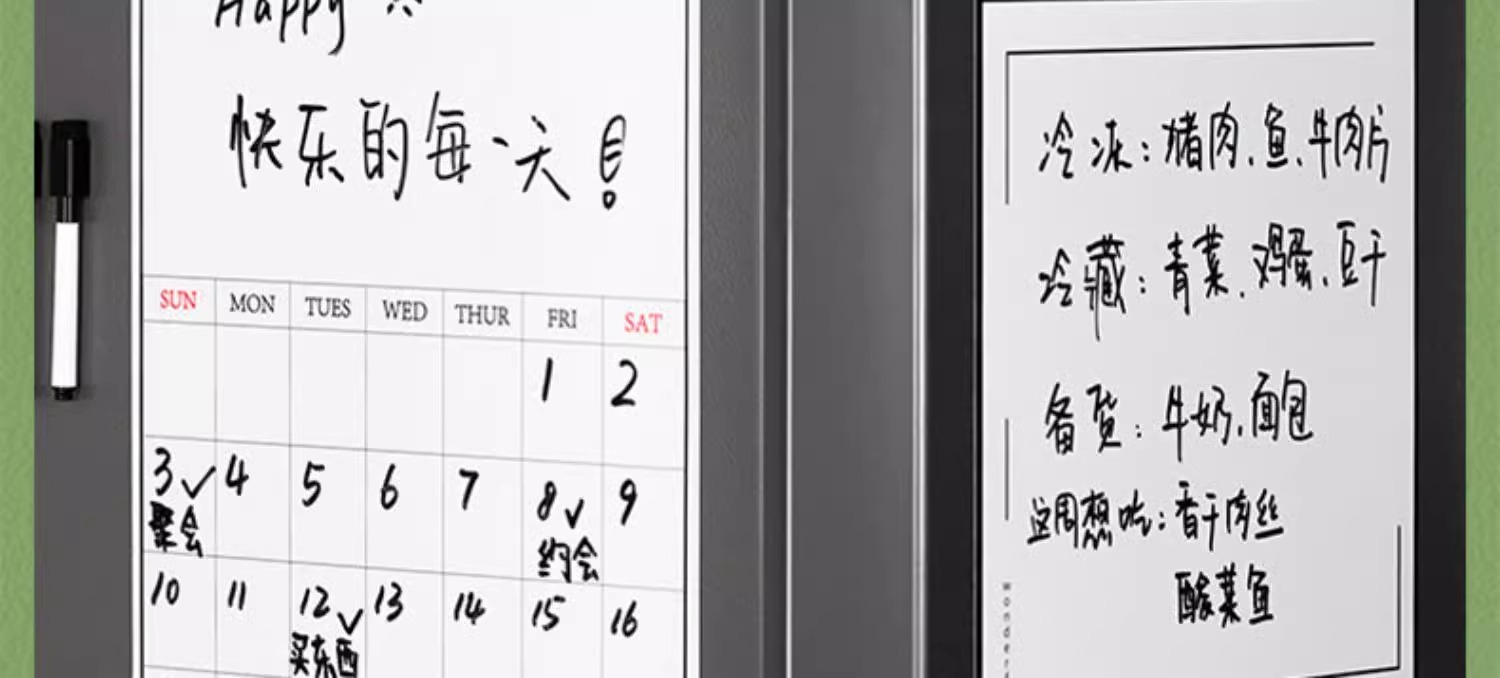 Happy
快乐的每一天!
SUN MON TUES WED THUR FRI SAT
1 2
3 4 5 6 7 8 9
聚会 约会
10 11 12 13 14 15 16
买东西
冷冻:猪肉、鱼、牛肉片
冷藏:青菜、鸡蛋、豆干
备货:牛奶、面包
这周想吃:香干肉丝
酸菜鱼
wonder